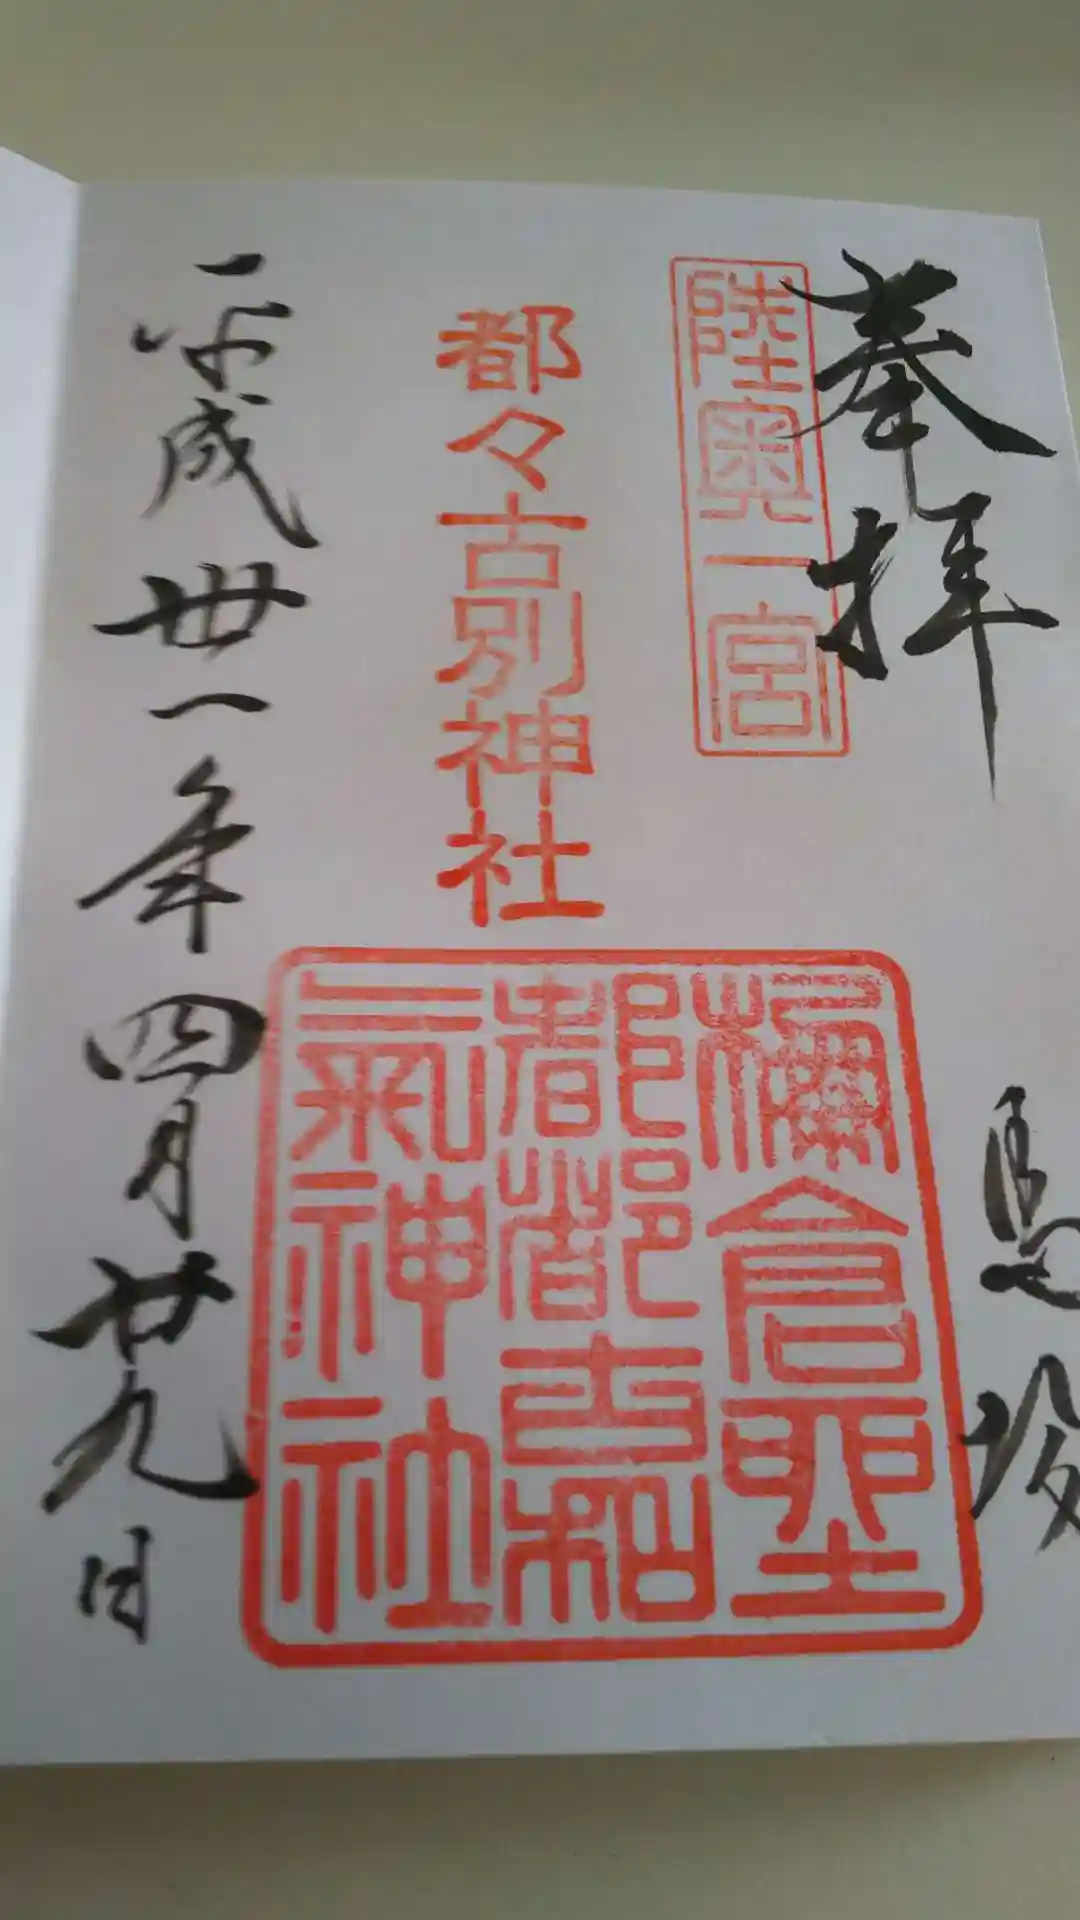 奉拝
馬場
陸奥一宮
都々古別神社
都都古和
氣神社
平成卅一年四月廿九日